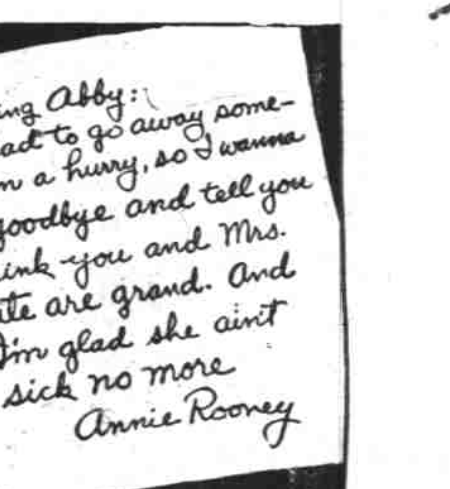 ng Abby:
ad to go away some-
n a hurry, so I wanna
goodbye and tell you
ink you and Mrs.
te are grand. And
I'm glad she ain't
sick no more
Annie Rooney